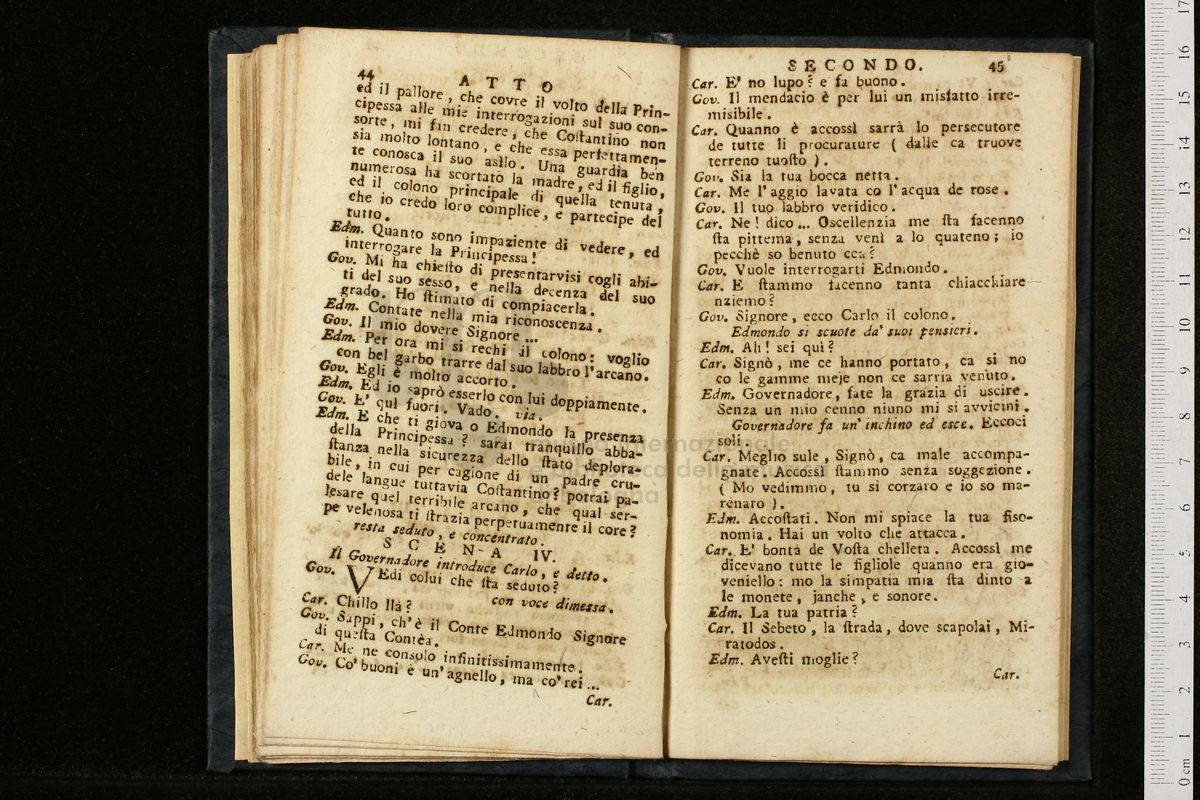 44
ATTO
ed il pallore, che covre il volto della Prin-
cipessa alle mie interrogazioni sul suo con-
sorte, mi fan credere, che Coſtantino non
sia molto lontano, e che essa perfettamen-
te conosca il suo asilo. Una guardia ben
numerosa ha scortato la madre, ed il figlio,
ed il colono principale di quella tenuta,
che io credo loro complice, e partecipe del
tutto.
Edm. Quanto sono impaziente di vedere, ed
interrogare la Principessa!
Gov. Mi ha chieſto di presentarvisi cogli abi-
ti del suo sesso, e nella decenza del suo
grado. Ho ſtimato di compiacerla.
Edm. Contate nella mia riconoscenza.
Gov. Il mio dovere Signore ...
Edm. Per ora mi si rechi il colono: voglio
con bel garbo trarre dal suo labbro l'arcano.
Gov. Egli è molto accorto.
Edm. Ed io saprò esserlo con lui doppiamente.
Gov. E' quì fuori. Vado. via.
Edm. E che ti giova o Edmondo la presenza
della Principessa? sarai tranquillo abba-
ſtanza nella sicurezza dello ſtato deplora-
bile, in cui per cagione di un padre cru-
dele langue tuttavia Coſtantino? potrai pa-
lesare quel terribile arcano, che qual ser-
pe velenosa ti ſtrazia perpetuamente il core?
resta seduto, e concentrato.
SCENA IV.
Il Governadore introduce Carlo, e detto.
Gov. VEdi colui che ſta seduto?
con voce dimessa.
Car. Chillo llà?
Gov. Sappi, ch'è il Conte Edmondo Signore
di queſta Contèa.
Car. Me ne consolo infinitissimamente.
Gov. Co' buoni è un' agnello, ma co' rei ...
Car.
SECONDO.
45
Car. E' no lupo? e fa buono.
Gov. Il mendacio è per lui un misfatto irre-
misibile.
Car. Quanno è accossì sarrà lo persecutore
de tutte li procurature ( dalle ca truove
terreno tuoſto ).
Gov. Sia la tua bocca netta.
Car. Me l'aggio lavata co l'acqua de rose.
Gov. Il tuo labbro veridico.
Car. Ne! dico ... Oscellenzia me ſta facenno
ſta pittema, senza venì a lo quateno; io
pecchè so benuto cca?
Gov. Vuole interrogarti Edmondo.
Car. E ſtammo facenno tanta chiacchiare
nziemo?
Gov. Signore, ecco Carlo il colono.
Edmondo si scuote da' suoi pensieri.
Edm. Ah! sei quì?
Car. Signò, me ce hanno portato, ca si no
co le gamme meje non ce sarria venuto.
Edm. Governadore, fate la grazia di uscire.
Senza un mio cenno niuno mi si avvicini.
Governadore fa un' inchino ed esce. Eccoci
soli.
Car. Meglio sule, Signò, ca male accompa-
gnate. Accossì ſtammo senza soggezione.
( Mo vedimmo, tu si corzaro e io so ma-
renaro ).
Edm. Accoſtati. Non mi spiace la tua fiso-
nomia. Hai un volto che attacca.
Car. E' bontà de Voſta chelleta. Accossì me
dicevano tutte le figliole quanno era gio-
veniello: mo la simpatia mia ſta dinto a
le monete, janche, e sonore.
Edm. La tua patria?
Car. Il Sebeto, la ſtrada, dove scapolai, Mi-
ratodos.
Edm. Aveſti moglie?
Car.